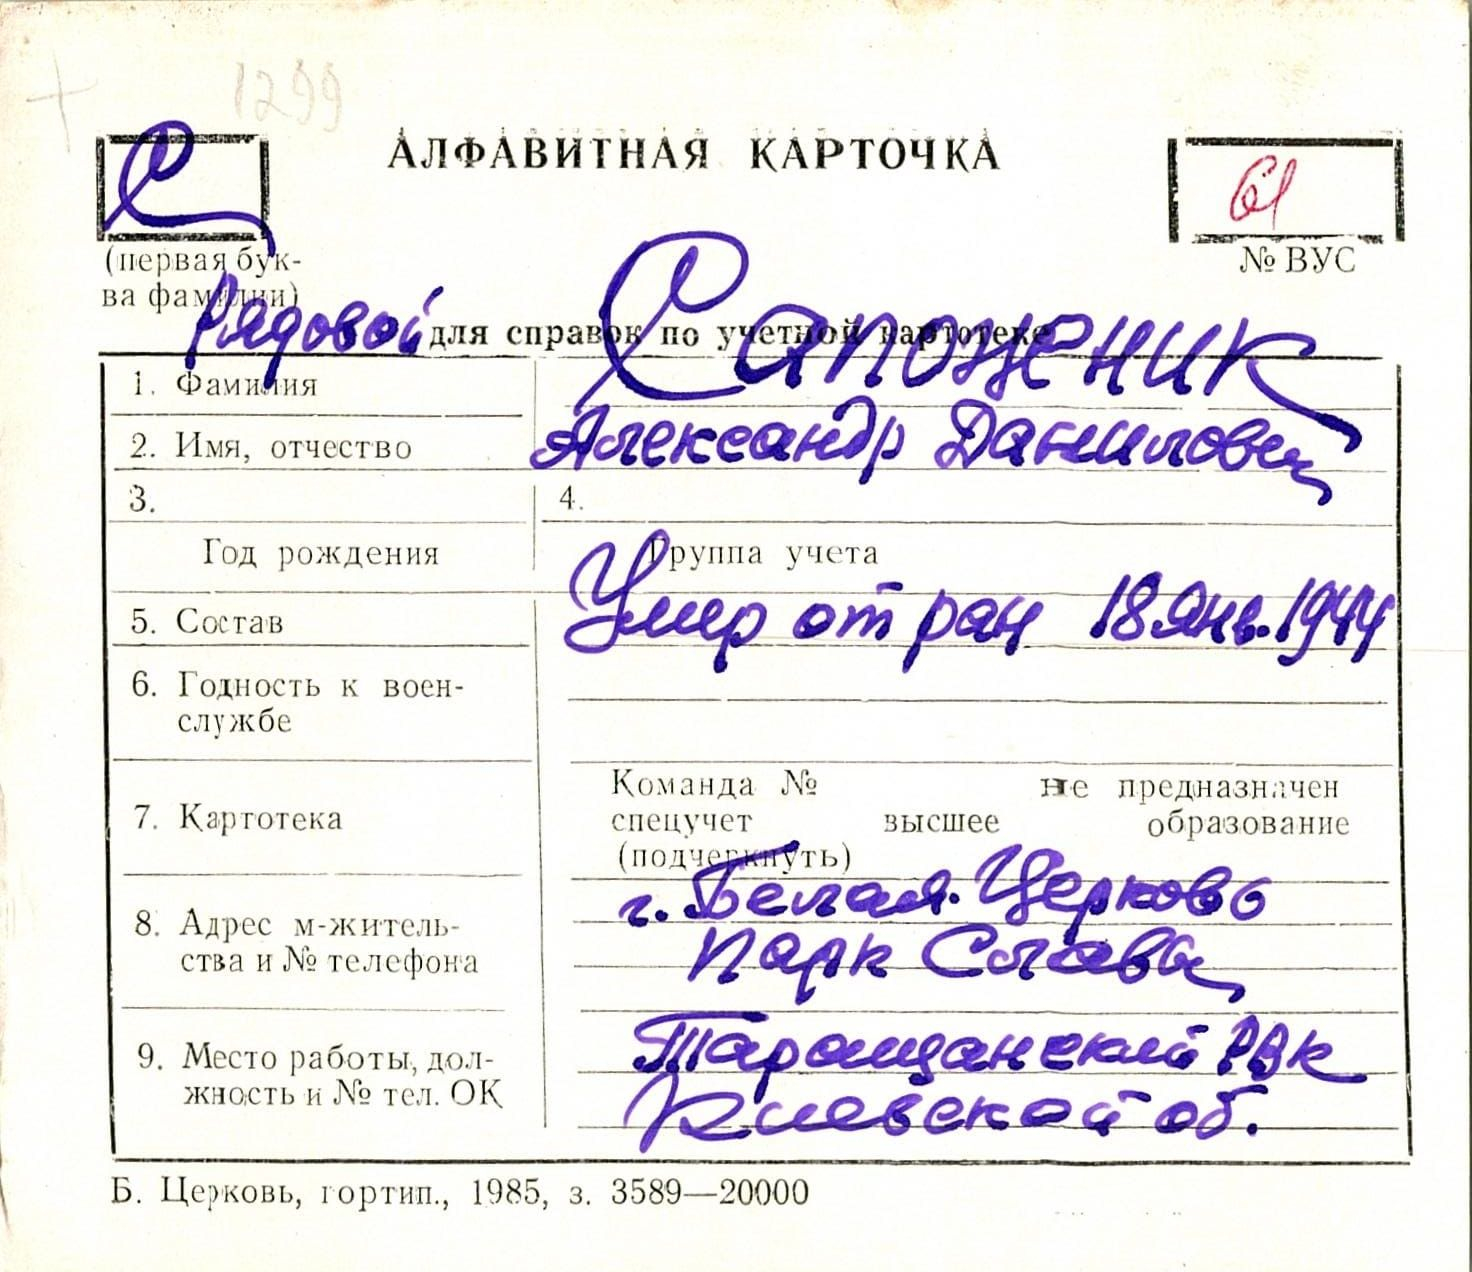 1299
АЛФАВИТНАЯ КАРТОЧКА
С
61
(первая бук-
ва фамилии)
№ ВУС
Рядовой
для справок по учетной картотеке
1. Фамилия
Сапожник
2. Имя, отчество
Александр Данилович
3.
4.
Год рождения
Группа учета
5. Состав
Умер от ран 18 янв. 1944
6. Годность к воен-
службе
7. Картотека
Команда № не предназначен
спецучет высшее образование
(подчеркнуть)
8. Адрес м-житель-
ства и № телефона
г. Белая-Церковь
парк Слава
9. Место работы, дол-
жность и № тел. ОК
Таращанский РВК
Киевской об.
Б. Церковь, гортип., 1985, з. 3589—20000